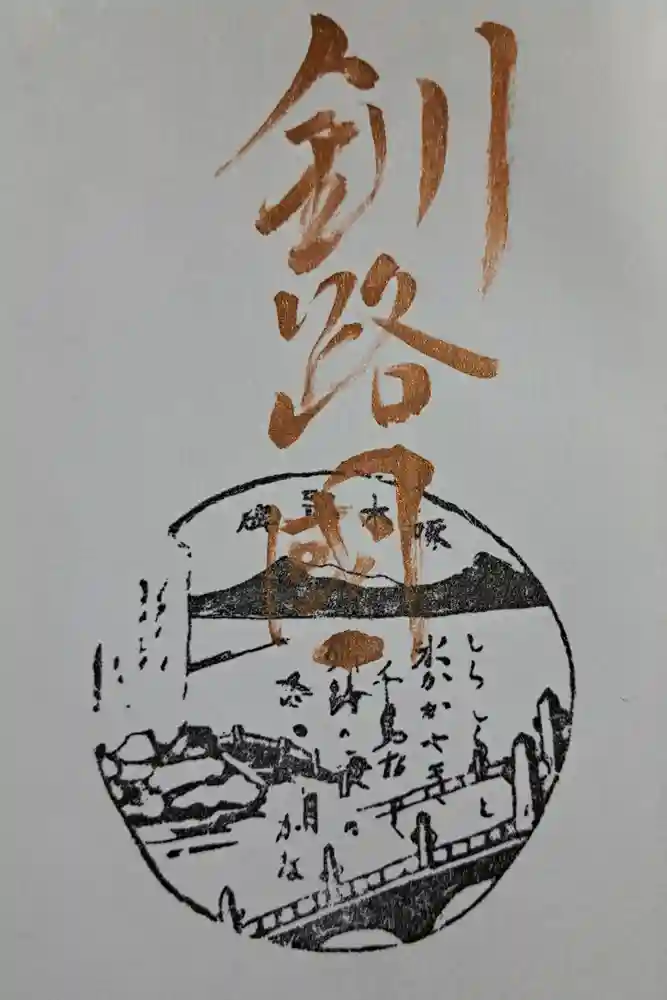 釧路國
啄木歌碑
しらしらと
氷かがやき
千鳥なく
釧路の海の
冬の月かな